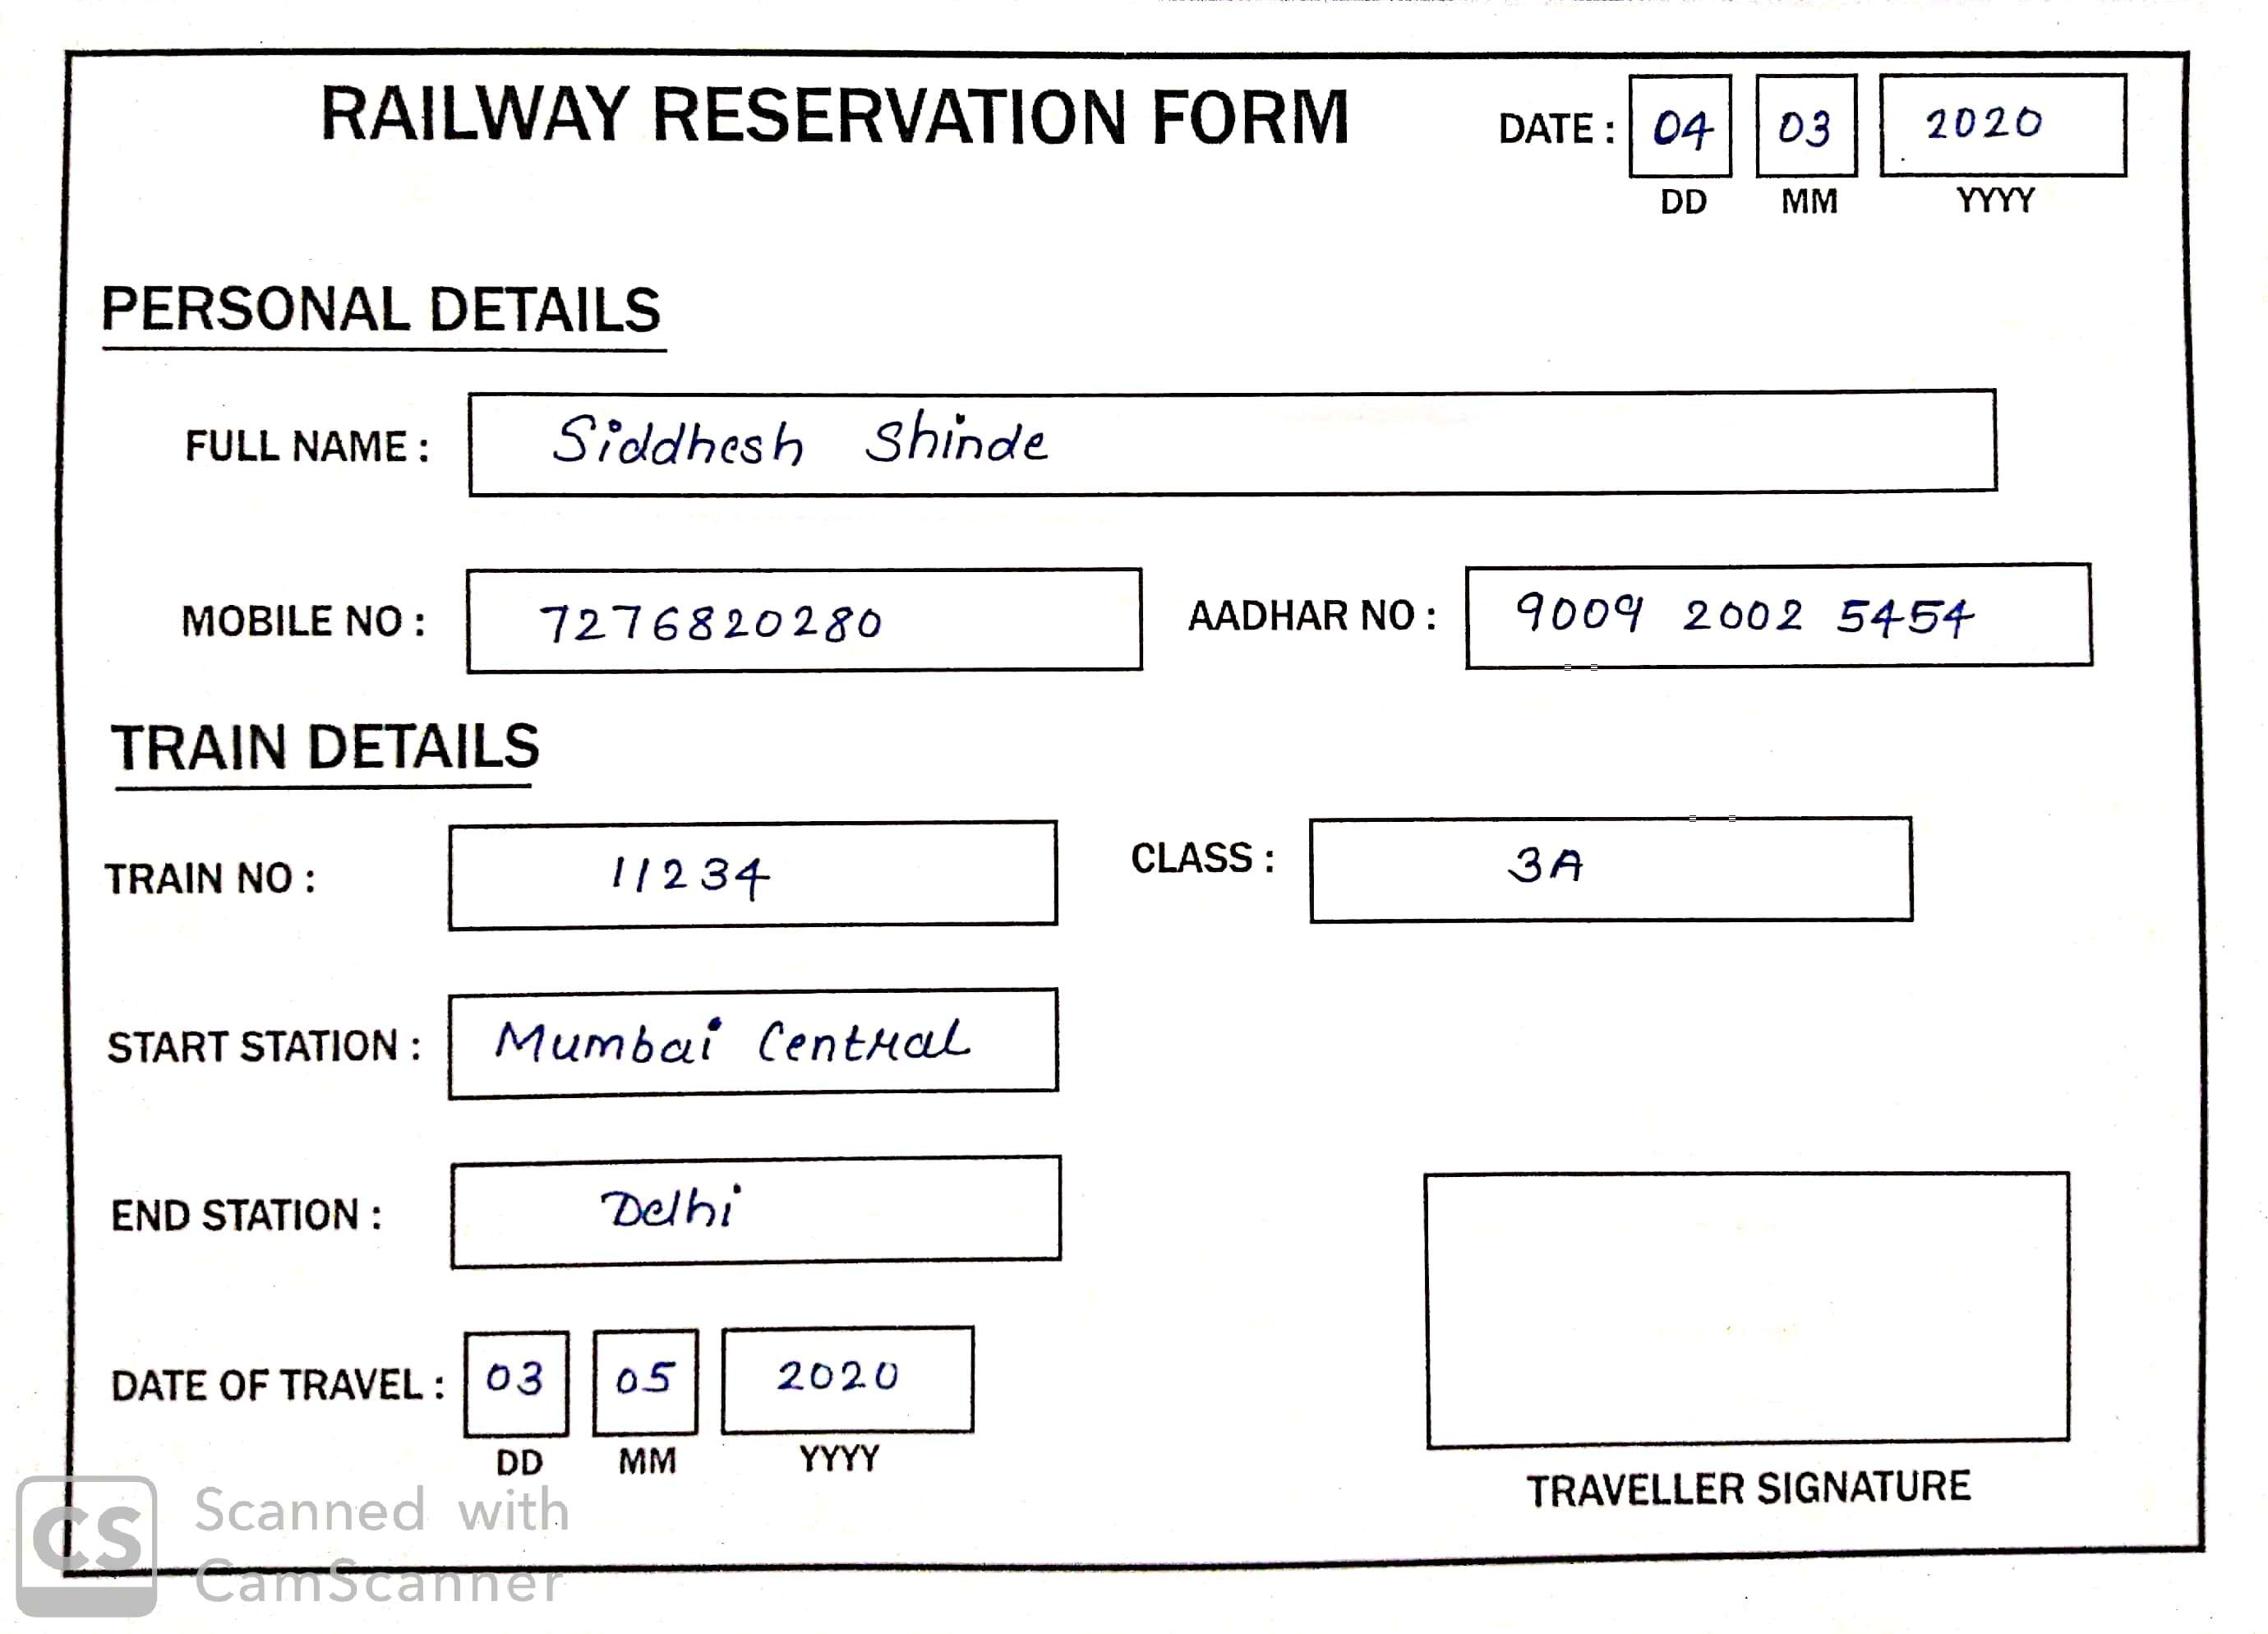 RAILWAY RESERVATION FORM DATE : 04 03 2020
DD MM YYYY
PERSONAL DETAILS
FULL NAME : Siddhesh Shinde
MOBILE NO : 7276820280 AADHAR NO : 9009 2002 5454
TRAIN DETAILS
TRAIN NO : 11234 CLASS : 3A
START STATION : Mumbai Central
END STATION : Delhi
DATE OF TRAVEL : 03 05 2020
DD MM YYYY
TRAVELLER SIGNATURE
CS Scanned with
CamScanner